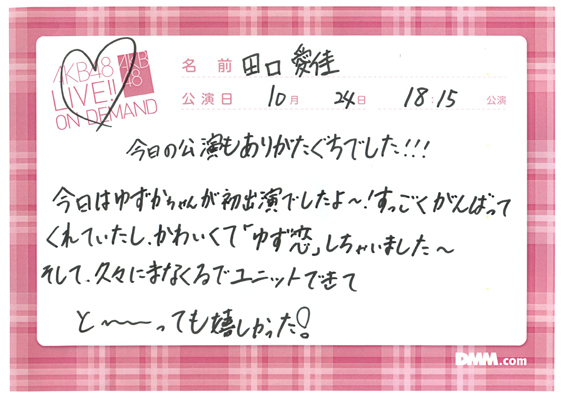 AKB48
LIVE!!
ON DEMAND
AKB
48
名前 田口愛佳
公演日 10月 24日 18:15 公演
今日の公演もありがたぐちでした!!!
今日はゆずかちゃんが初出演でしたよ〜!すっごくがんばって
くれていたし、かわいくて「ゆず恋」しちゃいました〜
そして、久々にまなくるでユニットできて
と〜〜っても嬉しかった!
DMM.com